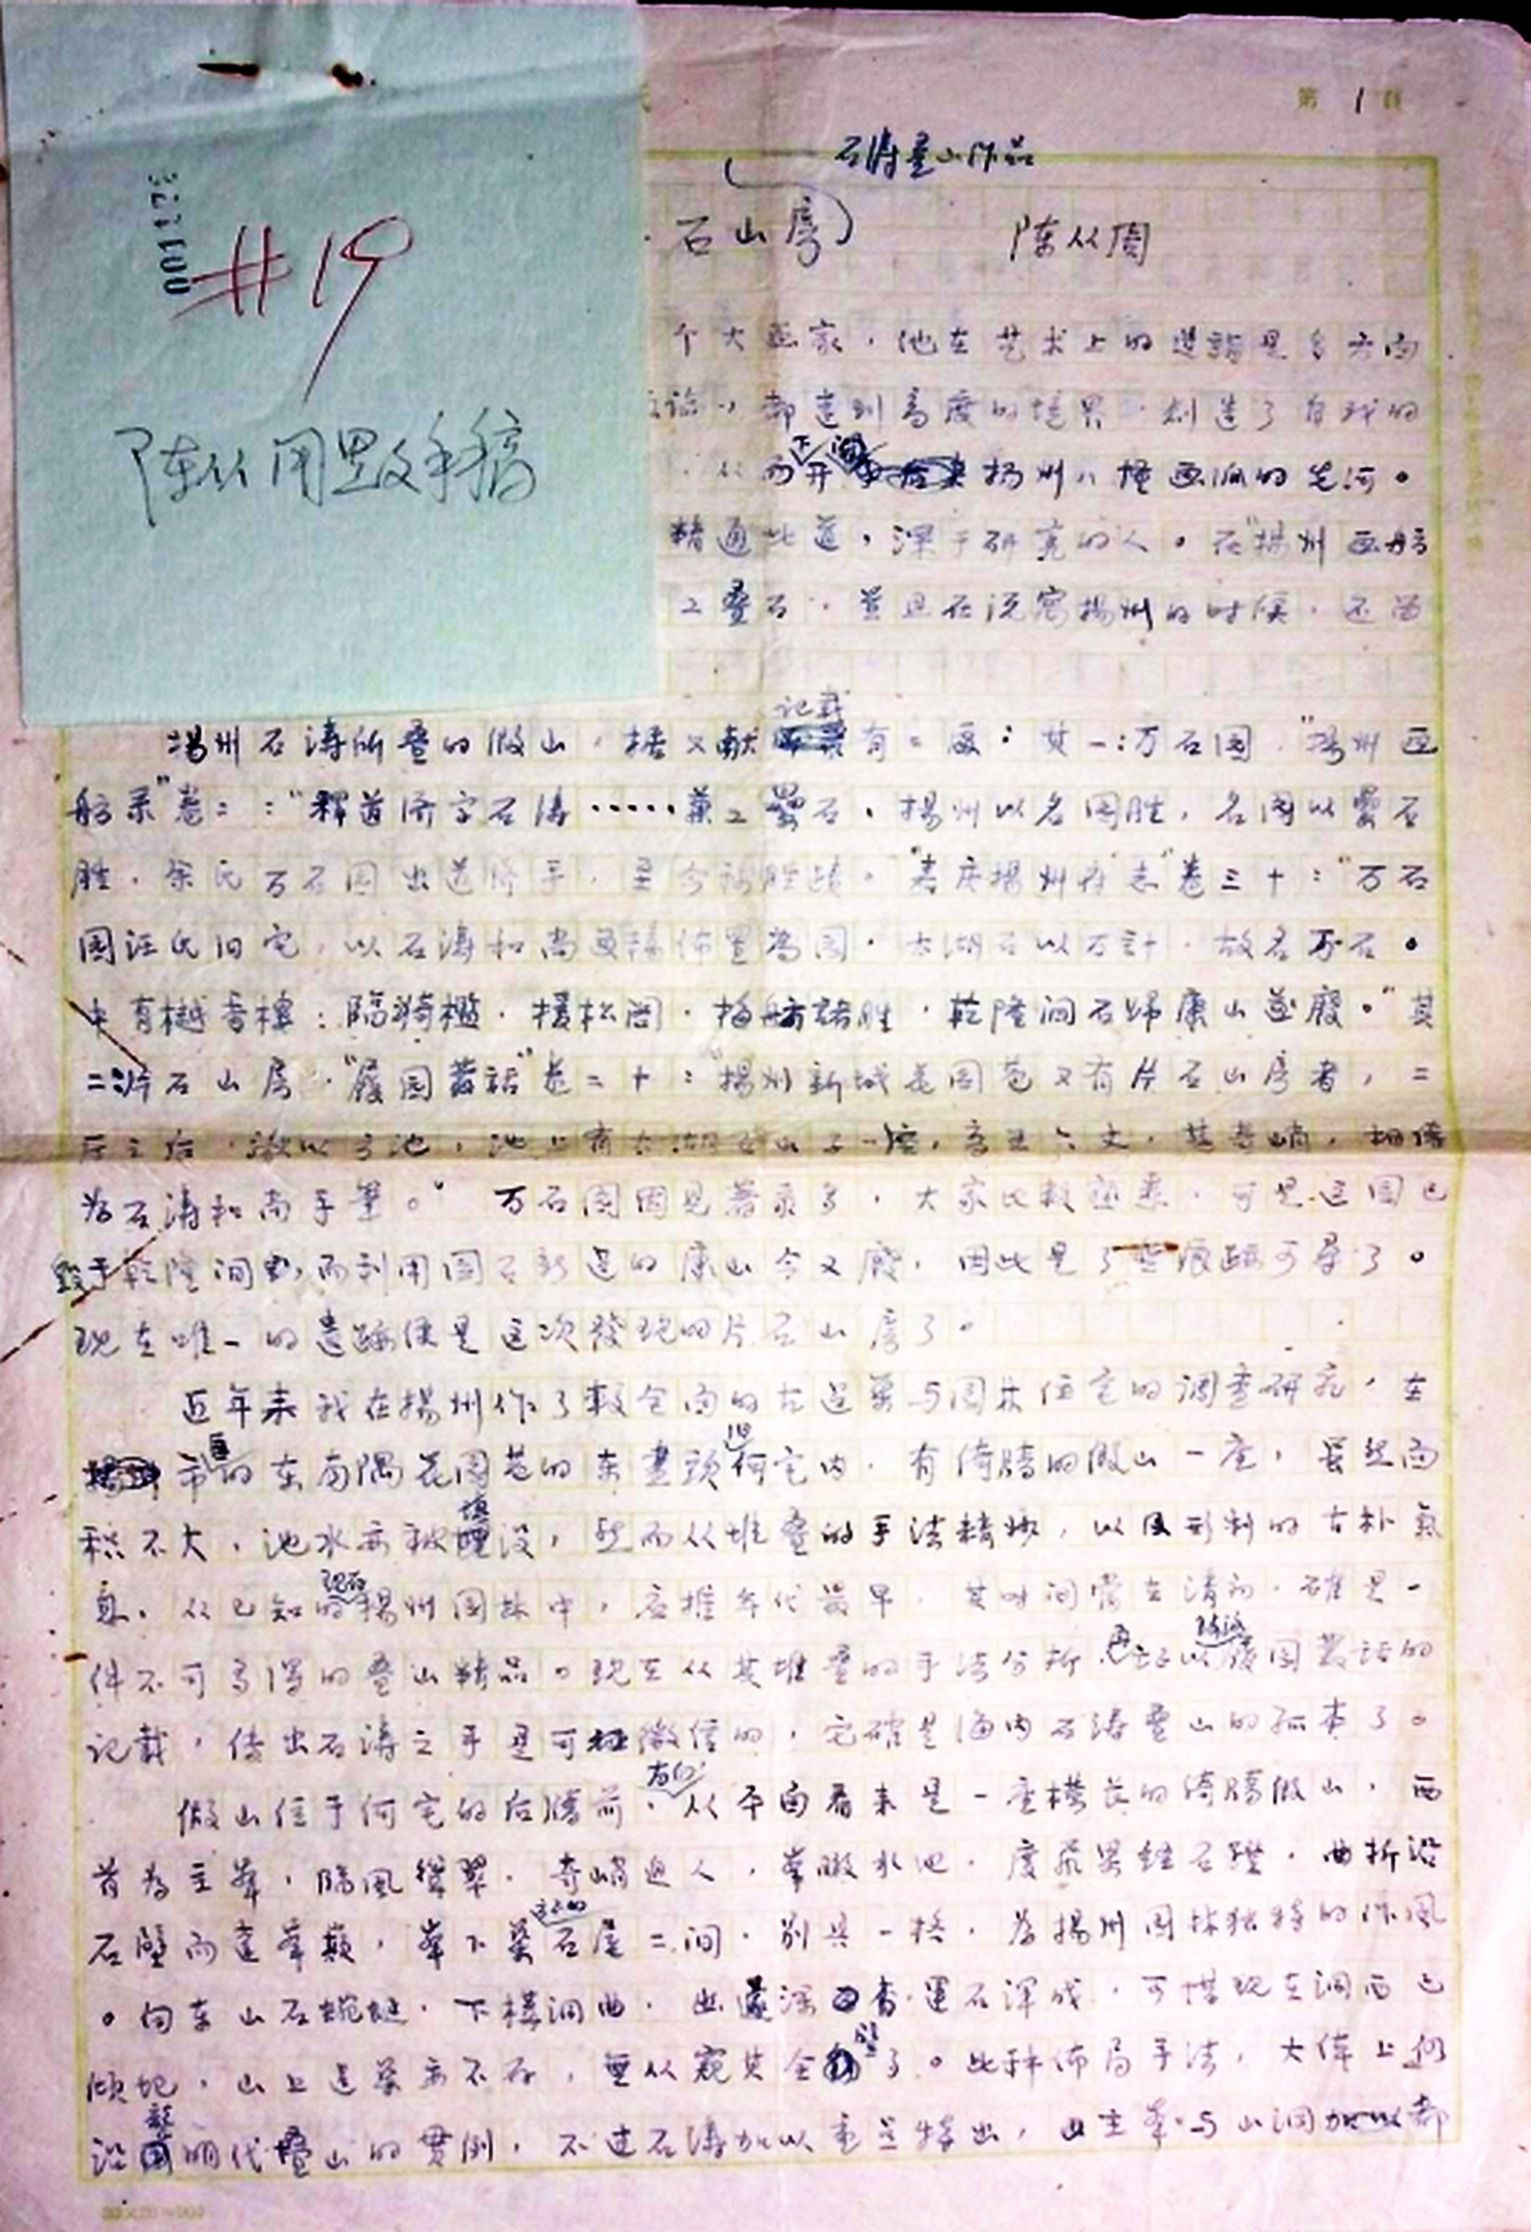 第 1 頁
石涛叠山作品
石山房)
陈从周
001173
#19
陈从周毁手稿
个大画家，他在艺术上的造詣是多方面
論，都达到高度的境界，創造了自我的
从而开下間揚州八怪画派的先河。
精通此道，深于研究的人。在“揚州画舫
工叠石，並且在流寓揚州的时候，还留
揚州石涛所叠的假山，据文献記載有二处：其一：万石园，“揚州画
舫录”卷二：“釋道济字石涛……兼工壘石。揚州以名园胜，名园以壘石
胜，余氏万石园出道济手，至今称胜蹟。”“嘉庆揚州府志”卷三十：“万石
园汪氏旧宅，以石涛和尚画稿佈置为园，太湖石以万計，故名万石。
中有樾香樓，臨漪檻，援松阁，梅舫諸胜，乾隆间石歸康山遂廢。”其
二片石山房，“履园叢話”卷二十：“揚州新城花园巷又有片石山房者，二
厅之后，潄以方池，池上有太湖石山子一座，高五六丈，甚奇峭，相傳
为石涛和尚手筆。” 万石园因见著录多，大家比較熟悉，可是这园已
毁于乾隆间，而利用园石新造的康山今又廢，因此是了無痕蹟可尋了。
现在唯一的遺蹟便是这次發现的片石山房了。
近年来我在揚州作了較全面的古建筑与园林住宅的调查研究，在
市的东南隅花园巷的东盡頭旧何宅内，有倚牆的假山一座，虽然面
积不大，池水亦被填没，然而从堆叠的手法精妙，以及形制的古朴氣
息，从已知的现存揚州园林中，应推年代最早，其时间当在清初，確是一
件不可多得的叠山精品。现在从其堆叠的手法分析，再証以履园叢話的
記載，传出石涛之手是可徵信的，它確是海内石涛叠山的孤本了。
假山位于何宅的后牆前，从平面看来是一座横长的倚牆假山，西
首为主峯，臨風聳翠，奇峭迫人，峯瞰水池，度飛梁经石磴，曲折沿
石壁而達峯巔，峯下築石屋二间，别具一格，为揚州园林独特的作風
。向东山石蜿蜒，下構洞曲，幽邃深杳，運石浑成，可惜现在洞西已
傾圯，山上建築亦不存，無从窺其全了。此种佈局手法，大体上仍
沿明代叠山的贯例，不过石涛加以重点特出，山主峯与山洞都